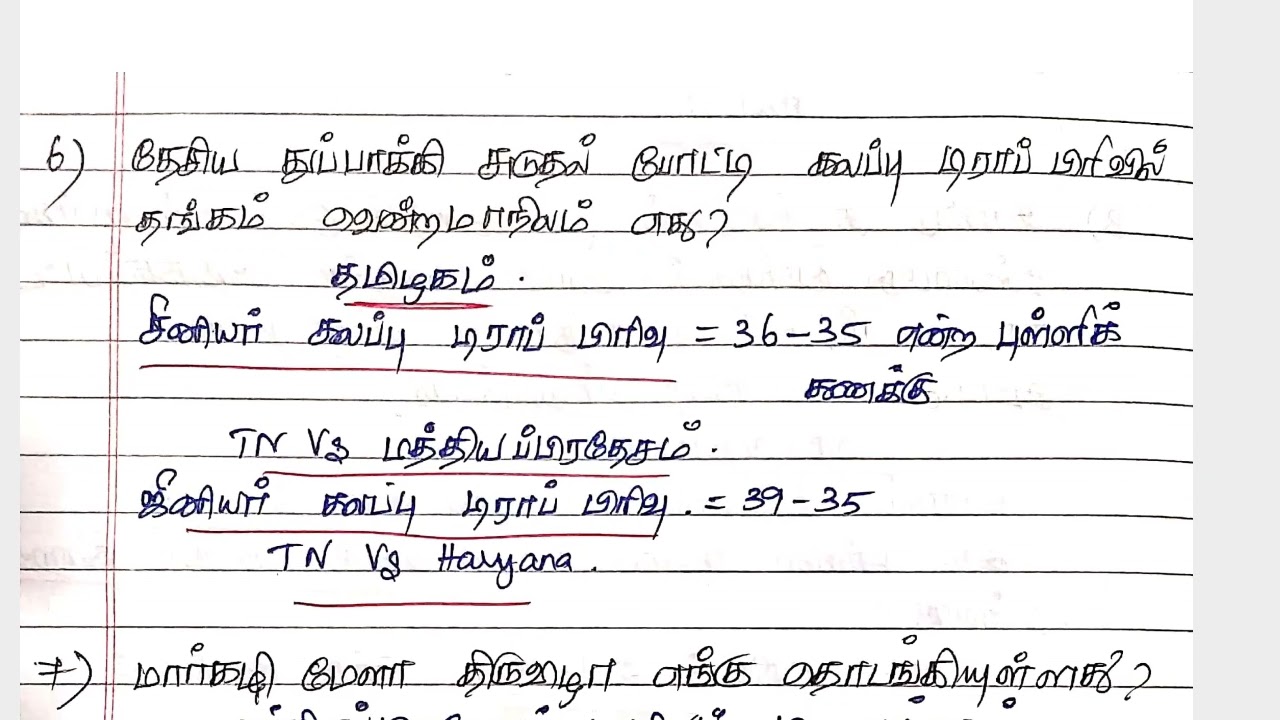 6) தேசிய துப்பாக்கி சுடுதல் போட்டி கலப்பு டிராப் பிரிவில்
தங்கம் வென்ற மாநிலம் எது?
தமிழகம்.
சீனியர் கலப்பு டிராப் பிரிவு = 36-35 என்ற புள்ளிக்
கணக்கு
TN Vs மத்தியப்பிரதேசம்.
ஜீனியர் கலப்பு டிராப் பிரிவு. = 39-35
TN Vs Haryana.
7) மார்கழி மேளா திருவிழா எங்கு தொடங்கியுள்ளது?